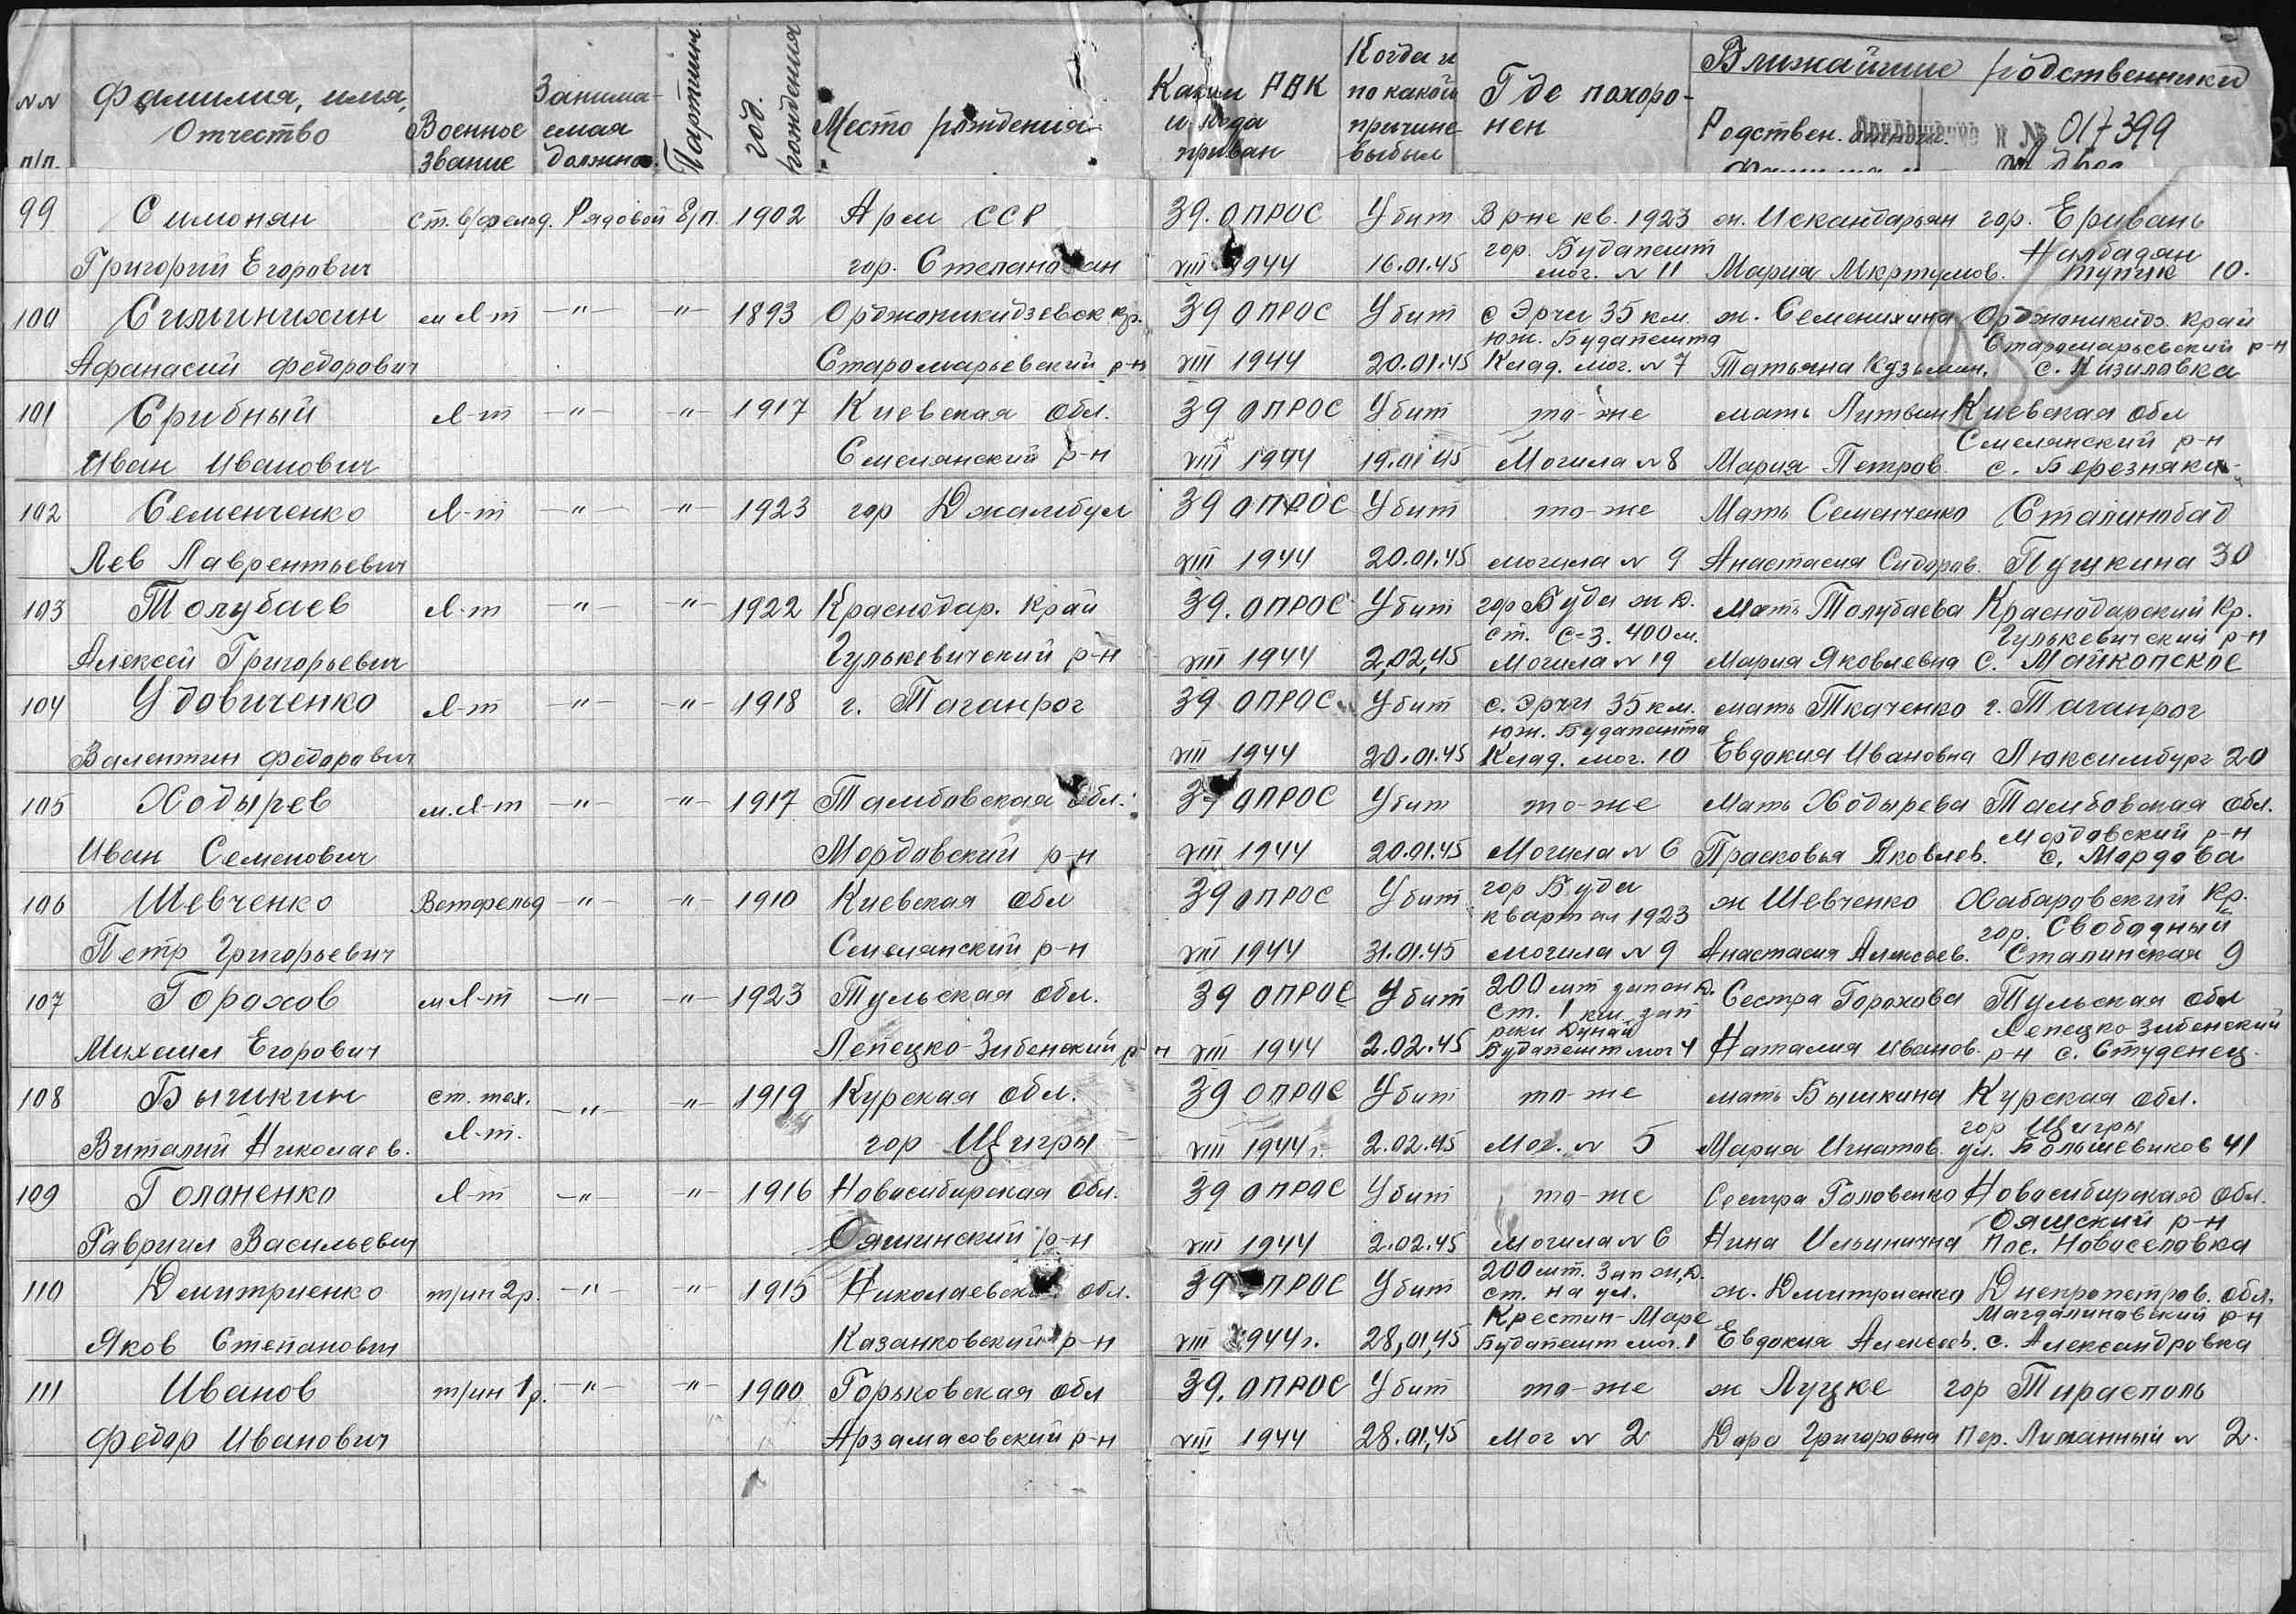 №№ п/п.
Фамилия, имя, Отчество
Военное звание
Занимаемая должно.
Партийн
год. рождения
Место рождения
Каким РВК и когда призван
Когда и по какой причине выбыл
Где похоронен
Ближайшие родственники
Родствен.
№ 017399
99 Симонян ст. в/фельд. Рядовой б/п. 1902 Арм ССР 39. ОПРОС Убит В р-не кв. 1923 ж. Искандарьян гор. Еривань
гор. Будапешт Налбадян
Григорий Егорович гор. Степанован VIII 1944 16.01.45 мог. № 11 Мария Мкртумов. тупик 10.
100 Симинихин м л-т —"— —"— 1893 Орджоникидзевск кр. 39 ОПРОС Убит с Эрчи 35 км. ж. Семенихина Орджоникидз. край
юж. Будапешта Старомарьевский р-н
Афанасий Федорович Старомарьевский р-н VIII 1944 20.01.45 Клад. мог. № 7 Татьяна Кузьмин. с. Кизиловка
101 Срибный л-т —"— —"— 1917 Киевская обл. 39 ОПРОС Убит то-же мать Литвин Киевская обл
Смелянский р-н
Иван Иванович Смелянский р-н VIII 1944 19.01 45 Могила № 8 Мария Петров. с. Березняки
102 Семенченко л-т —"— —"— 1923 гор Джамбул 39 ОПРОС Убит то-же Мать Семенченко Сталинобад
Лев Лаврентьевич VIII 1944 20.01.45 могила № 9 Анастасия Сидоров. Пушкина 30
103 Толубаев л-т —"— —"— 1922 Краснодар. край 39. ОПРОС Убит гор Буда ж д. Мать Толубаева Краснодарский кр.
ст. С-З. 400 м. Гулькевичский р-н
Алексей Григорьевич Гулькевичский р-н VIII 1944 2,02,45 Могила № 19 Мария Яковлевна с. Майкопское
104 Удовиченко л-т —"— —"— 1918 г. Таганрог 39 ОПРОС Убит с. Эрчи 35 км. мать Ткаченко г. Таганрог
юж. Будапешта
Валентин Федорович VIII 1944 20.01.45 Клад. мог. 10 Евдокия Ивановна Люксимбург 20
105 Ходырев м. л-т —"— —"— 1917 Тамбовская обл. 39 ОПРОС Убит то-же Мать Ходырева Тамбовская обл.
Мордовский р-н
Иван Семенович Мордовский р-н VIII 1944 20.01.45 Могила № 6 Прасковья Яковлев. с. Мордова
106 Шевченко Ветфельд —"— —"— 1910 Киевская обл 39 ОПРОС Убит гор Буда ж Шевченко Хабаровский кр.
квартал 1923 гор. Свободный
Петр Григорьевич Смелянский р-н VIII 1944 31.01.45 могила № 9 Анастасия Алексеев. Сталинская 9
107 Горохов м л-т —"— —"— 1923 Тульская обл. 39 ОПРОС Убит 200 мт зап ж д. Сестра Горохова Тульская обл
ст. 1 км. зап реки Дунай Лепецко-Зыбенский
Михаил Егорович Лепецко-Зибенский р-н VIII 1944 2.02.45 Будапешт мог 4 Наталия Иванов. р-н с. Студенец.
108 Бышкин ст. тех. л-т. —"— —"— 1919 Курская обл. 39 ОПРОС Убит то-же мать Бышкина Курская обл.
гор Щигры
Виталий Николаев. гор Щигры VIII 1944 г. 2.02.45 Мог. № 5 Мария Игнатов. ул. Большевиков 41
109 Голоненко л-т —"— —"— 1916 Новосибирская обл. 39 ОПРОС Убит то-же Сестра Головенко Новосибирская обл.
Ояшский р-н
Гавриил Васильевич Ояшинский р-н VIII 1944 2.02.45 Могила № 6 Нина Ильинична пос. Новоселовка
110 Дмитриенко т/ин 2 р. —"— —"— 1915 Николаевская обл. 39 ОПРОС Убит 200 мт. Зап ж,д. ж. Дмитриенко Днепропетров. обл.
ст. на ул. Крестин-Маре Магдалиновский р-н
Яков Степанович Казанковский р-н VIII 1944 г. 28,01,45 Будапешт мог. 1 Евдокия Алексеев. с. Александровка
111 Иванов т/ин 1 р. —"— —"— 1900 Горьковская обл 39. ОПРОС Убит то-же ж Луцке гор Тирасполь
Федор Иванович Арзамасовский р-н VIII 1944 28.01,45 Мог № 2 Дора Григоровна Пер. Лиманный № 2.